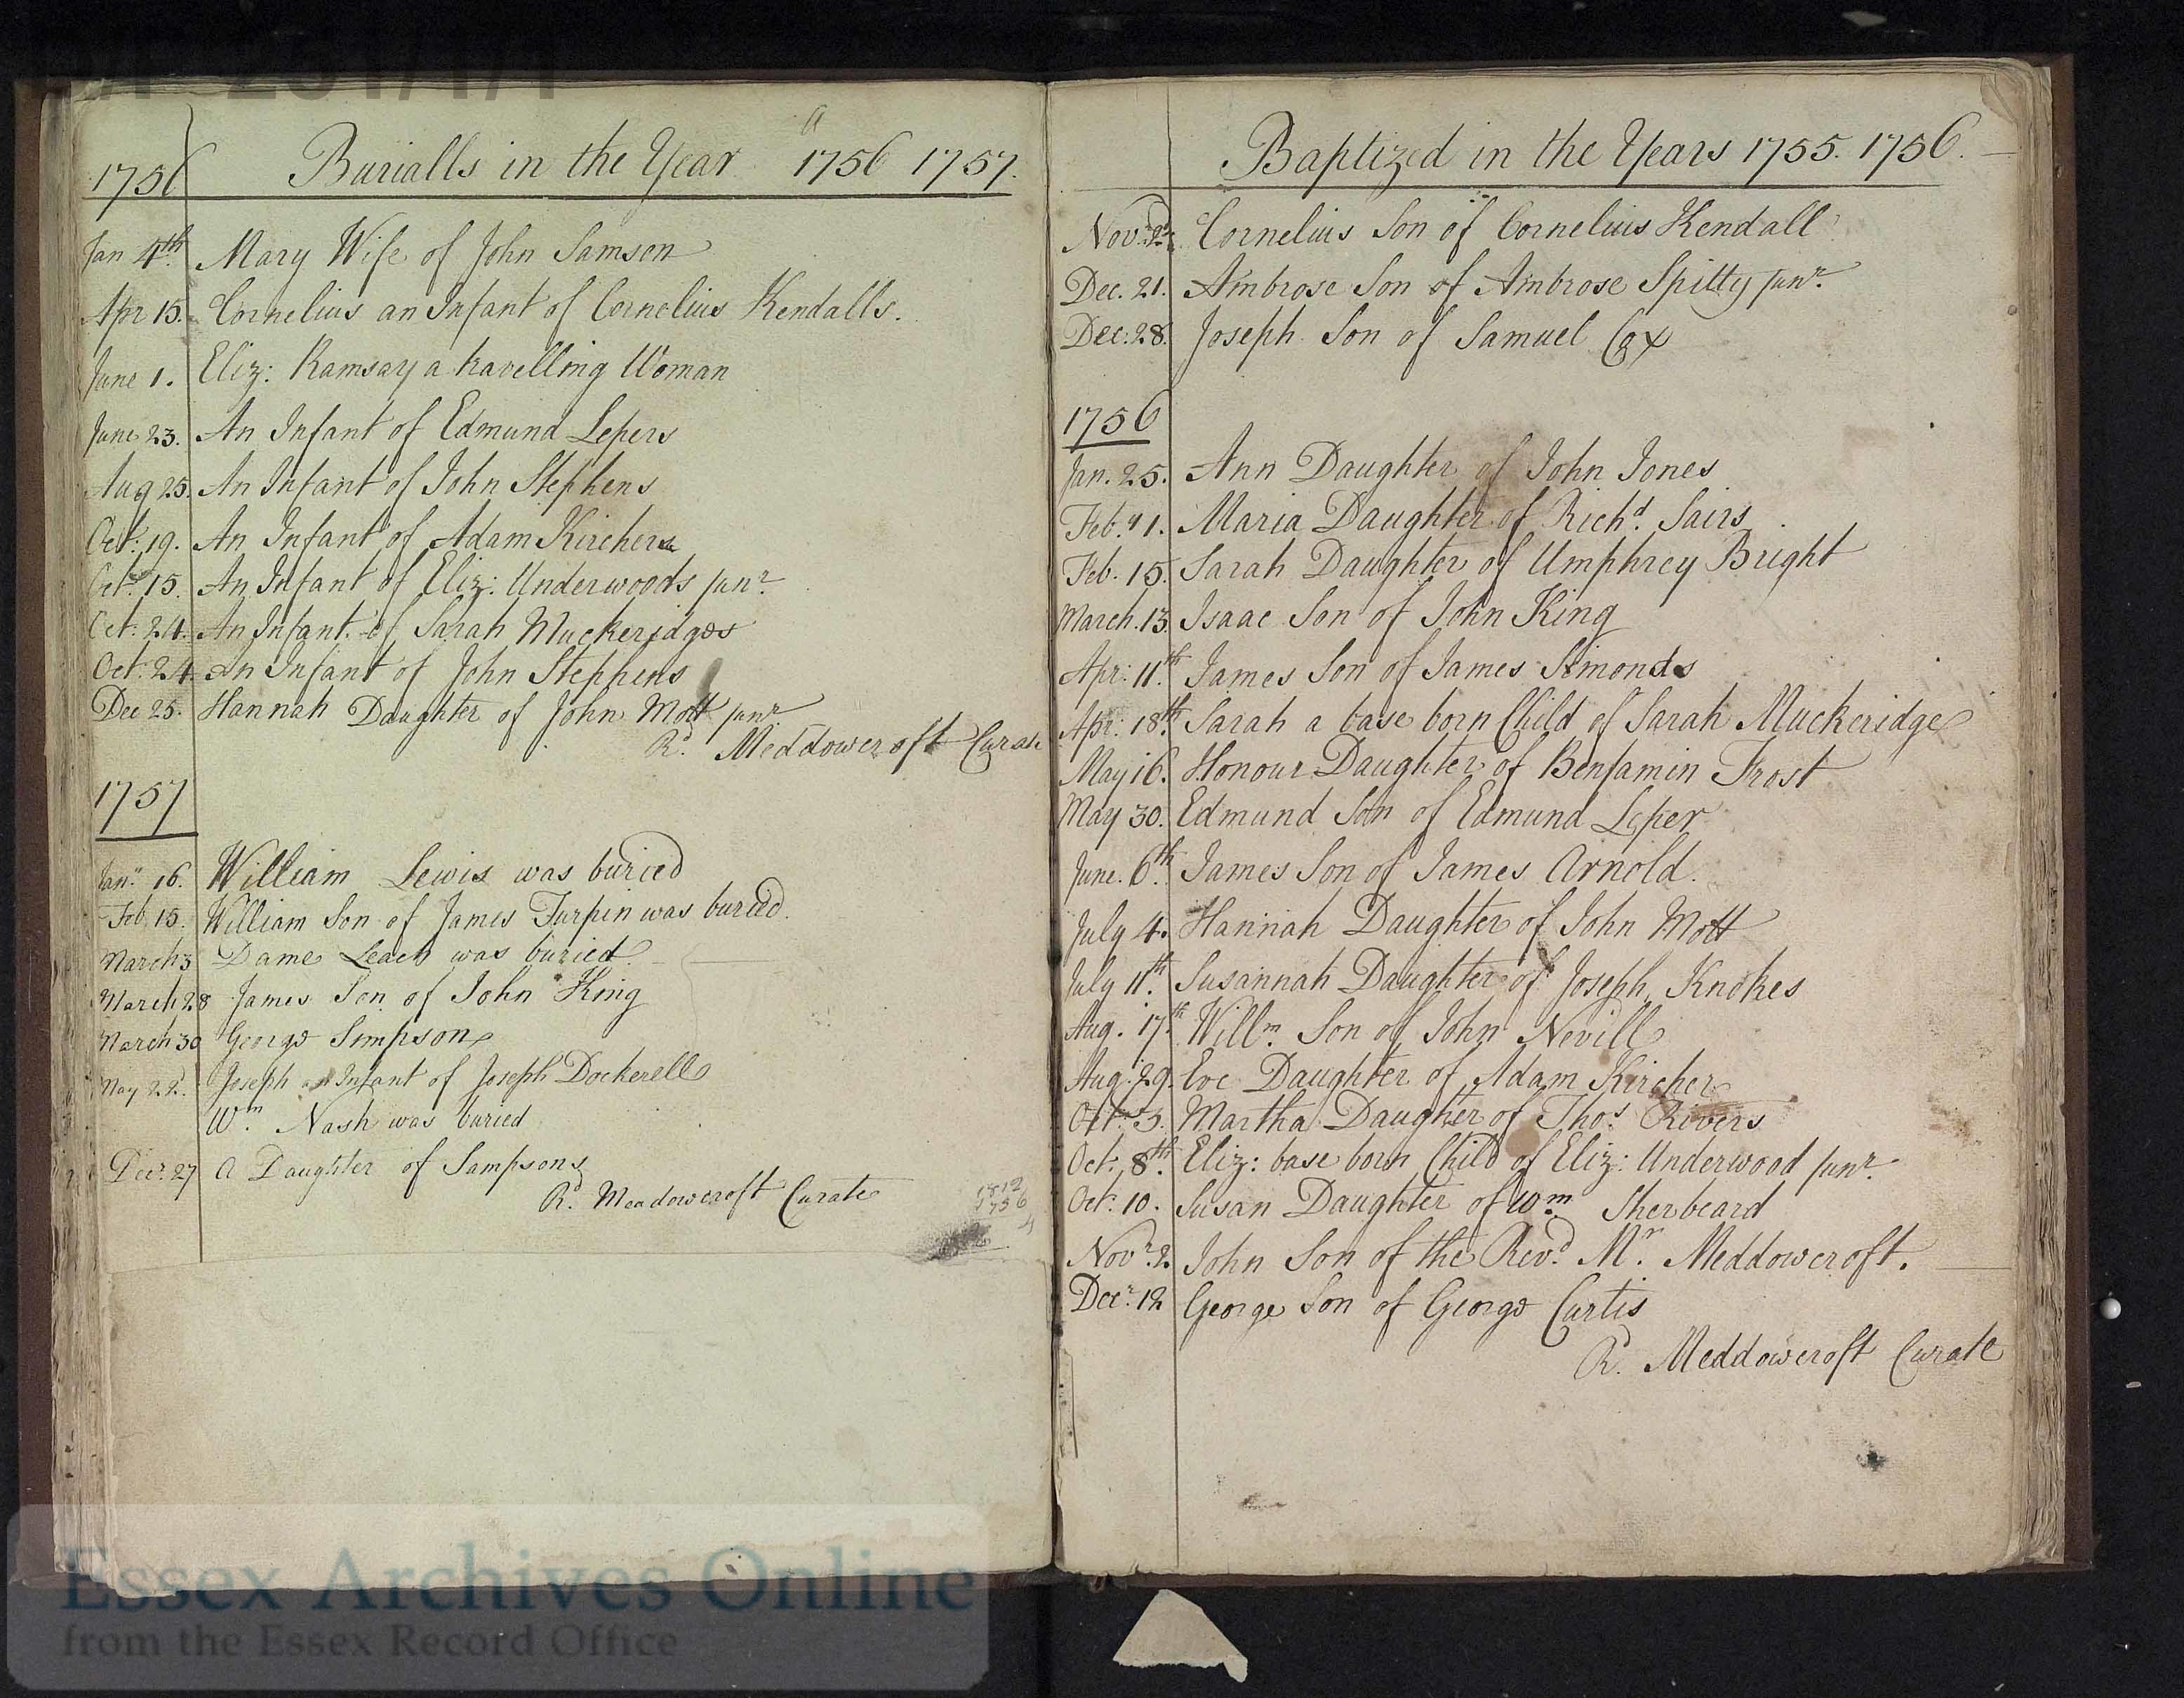 1756 Burialls in the Year 1756 1757.
Jan 4th. Mary Wife of John Samson
Apr 15. Cornelius an Infant of Cornelius Kendalls.
June 1. Eliz: Ramsay a travelling Woman
June 23. An Infant of Edmund Lepers
Aug 25. An Infant of John Stephens
Oct. 19. An Infant of Adam Kirchers
Oct. 15. An Infant of Eliz: Underwoods junr.
Oct. 24. An Infant of Sarah Muckeridges
Oct. 24. An Infant of John Stephens
Dec 25. Hannah Daughter of John Mott junr
Rd. Meddowcroft Curate
1757
Jany 16. William Lewis was buried
Feb 15. William Son of James Turpin was buried.
March 3 Dame Leach was buried
March 28 James Son of John King
March 30 George Simpson
May 22. Joseph an Infant of Joseph Dockerell
Wm. Nash was buried
Decr. 27 a Daughter of Sampsons
Rd. Meadowcroft Curate
1812
1756
Baptized in the Years 1755. 1756.
Novr. Cornelius Son of Cornelius Kendall
Dec. 21. Ambrose Son of Ambrose Spitty junr.
Dec. 28. Joseph Son of Samuel Cox
1756
Jan. 25. Ann Daughter of John Jones
Feb. 1. Maria Daughter of Richd. Sairs
Feb. 15. Sarah Daughter of Umphrey Bright
March. 13. Isaac Son of John King
Apr: 11th. James Son of James Simonds
Apr: 18th. Sarah a base born Child of Sarah Muckeridge
May 16. Honour Daughter of Benjamin Frost
May 30. Edmund Son of Edmund Leper
June. 6th. James Son of James Arnold.
July 4. Hannah Daughter of John Mott
July 11th. Susannah Daughter of Joseph Knokes
Aug. 17th. Willm. Son of John Nevill
Aug. 29. Eve Daughter of Adam Kircher
Oct. 3. Martha Daughter of Thos. Rivers
Oct. 8th. Eliz: base born Child of Eliz: Underwood junr.
Oct. 10. Susan Daughter of Wm. Sherbeard
Novr. 2. John Son of the Revd. Mr. Meddowcroft.
Decr. 12 George Son of George Curtis
Rd. Meddowcroft Curate
Essex Archives Online
from the Essex Record Office